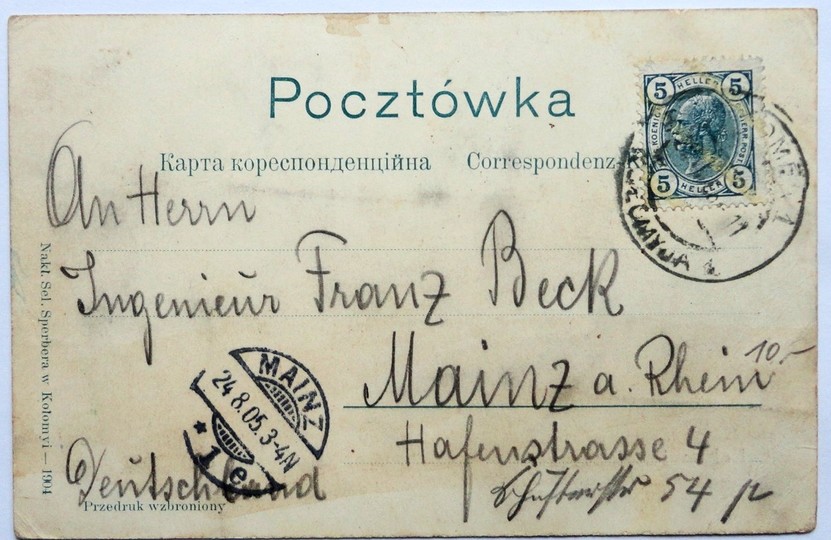 Pocztówka
Карта кореспонденційна Correspondenz-
5 HELLER 5
5 HELLER 5
KOLOMYJA
An Herrn
Ingenieur Franz Beck
Mainz a. Rhein
10.-
Hafenstrasse 4
54
Deutschland
MAINZ
24.8.05.3-4N
* 1 e
Nakł. Sel. Sperbera w Kołomyi — 1904
Przedruk wzbroniony